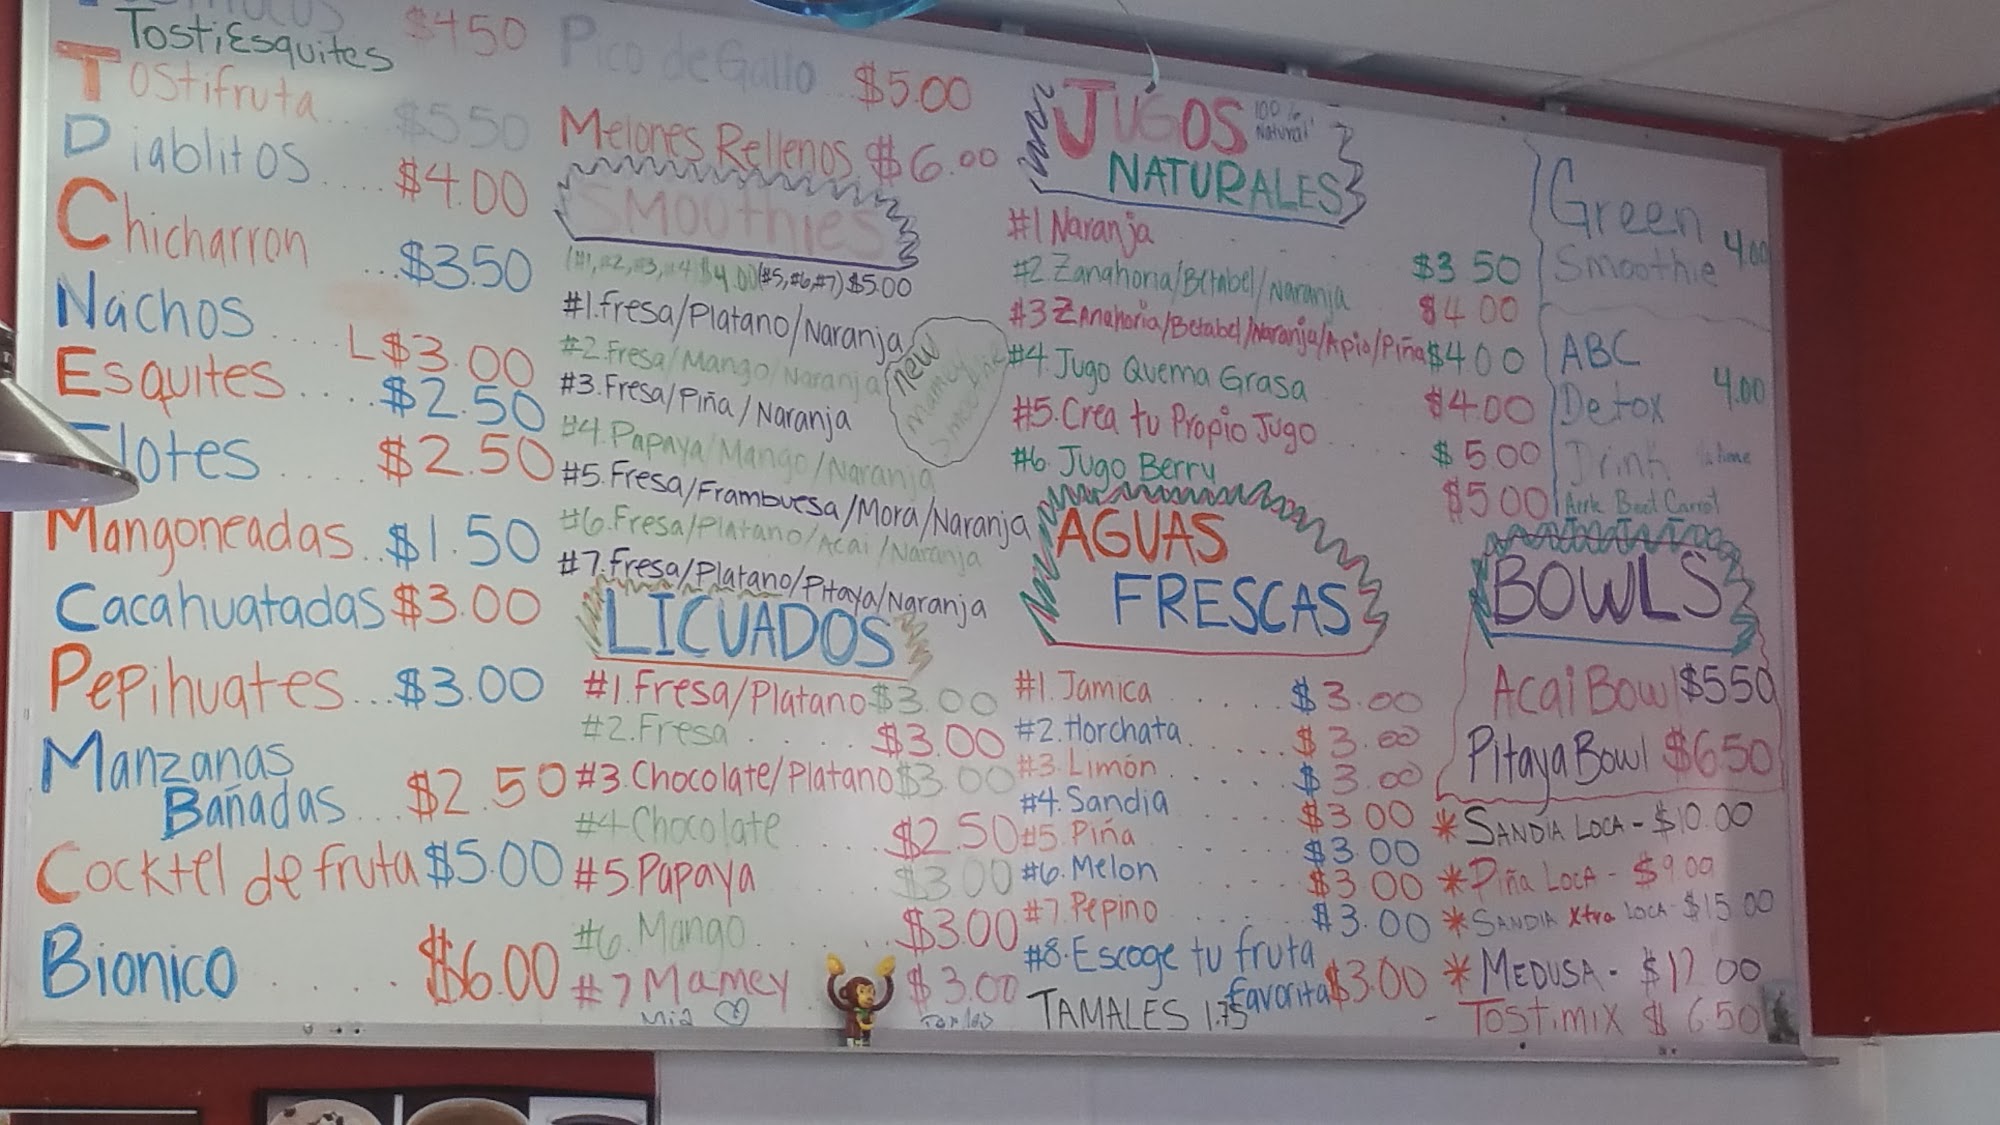 TostiEsquites $450
Tostifruta... $550
Diablitos.... $4.00
Chicharron ...$3.50
Nachos.... L$3.00
Esquites.... $2.50
Elotes.... $2.50
Mangoneadas..$1.50
Cacahuatadas $3.00
Pepihuates...$3.00
Manzanas
Bañadas... $2.50
Cocktel de fruta $5.00
Bionico .... $6.00
Pico de Gallo.. $5.00
Melones Rellenos $6.00
SMOOTHIES
(#1,#2,#3,#4) $4.00 (#5,#6,#7) $5.00
#1.Fresa/Platano/Naranja
#2.Fresa/Mango/Naranja
#3.Fresa/Piña/Naranja
#4.Papaya/Mango/Naranja
#5.Fresa/Frambuesa/Mora/Naranja
#6.Fresa/Platano/Acai/Naranja
#7.Fresa/Platano/Pitaya/Naranja
new
mamey
LICUADOS
#1.Fresa/Platano $3.00
#2.Fresa..... $3.00
#3.Chocolate/Platano $3.00
#4 Chocolate .... $2.50
#5.Papaya ..... $3.00
#6.Mango...... $3.00
#7 Mamey $3.00
JUGOS 100%
Natural
NATURALES
#1 Naranja .... $3 50
#2 Zanahoria/Betabel/Naranja .. $4 00
#3 Zanahoria/Betabel/Naranja/Apio/Piña $4 00
#4. Jugo Quema Grasa $4.00
#5. Crea tu Propio Jugo .... $ 5 00
#6. Jugo Berry $5 00
AGUAS
FRESCAS
#1. Jamica ..... $ 3.00
#2. Horchata..... $ 3.00
#3. Limón..... $ 3.00
#4. Sandia ..... $3 00
#5. Piña ..... $3 00
#6. Melon ..... $3 00
#7. Pepino ..... $3.00
#8. Escoge tu fruta
favorita $3.00
TAMALES 1.75
Green
Smoothie 4.00
ABC
Detox 4.00
Drink
Beet Carrot
BOWLS
Acai Bowl $550
Pitaya Bowl $6.50
* SANDÍA LOCA - $10.00
* PIÑA LOCA - $9.00
* SANDIA Xtra LOCA - $15 00
* MEDUSA - $12.00
- TOSTIMIX $ 6.50